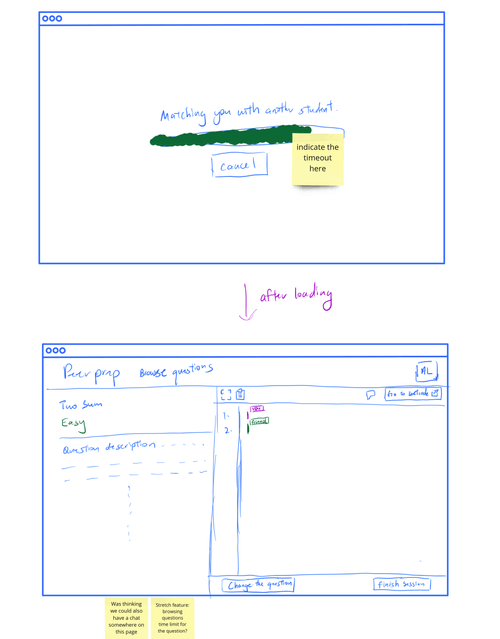 Matching you with another student.
indicate the
timeout
here
cancel
after loading
Peerprep
Browse questions
NL
Two Sum
Easy
Go to Leetcode
1.
2.
Question description
Change the question
Finish session
Was thinking
we could also
have a chat
somewhere on
this page
Stretch feature:
browsing
questions
time limit for
the question?